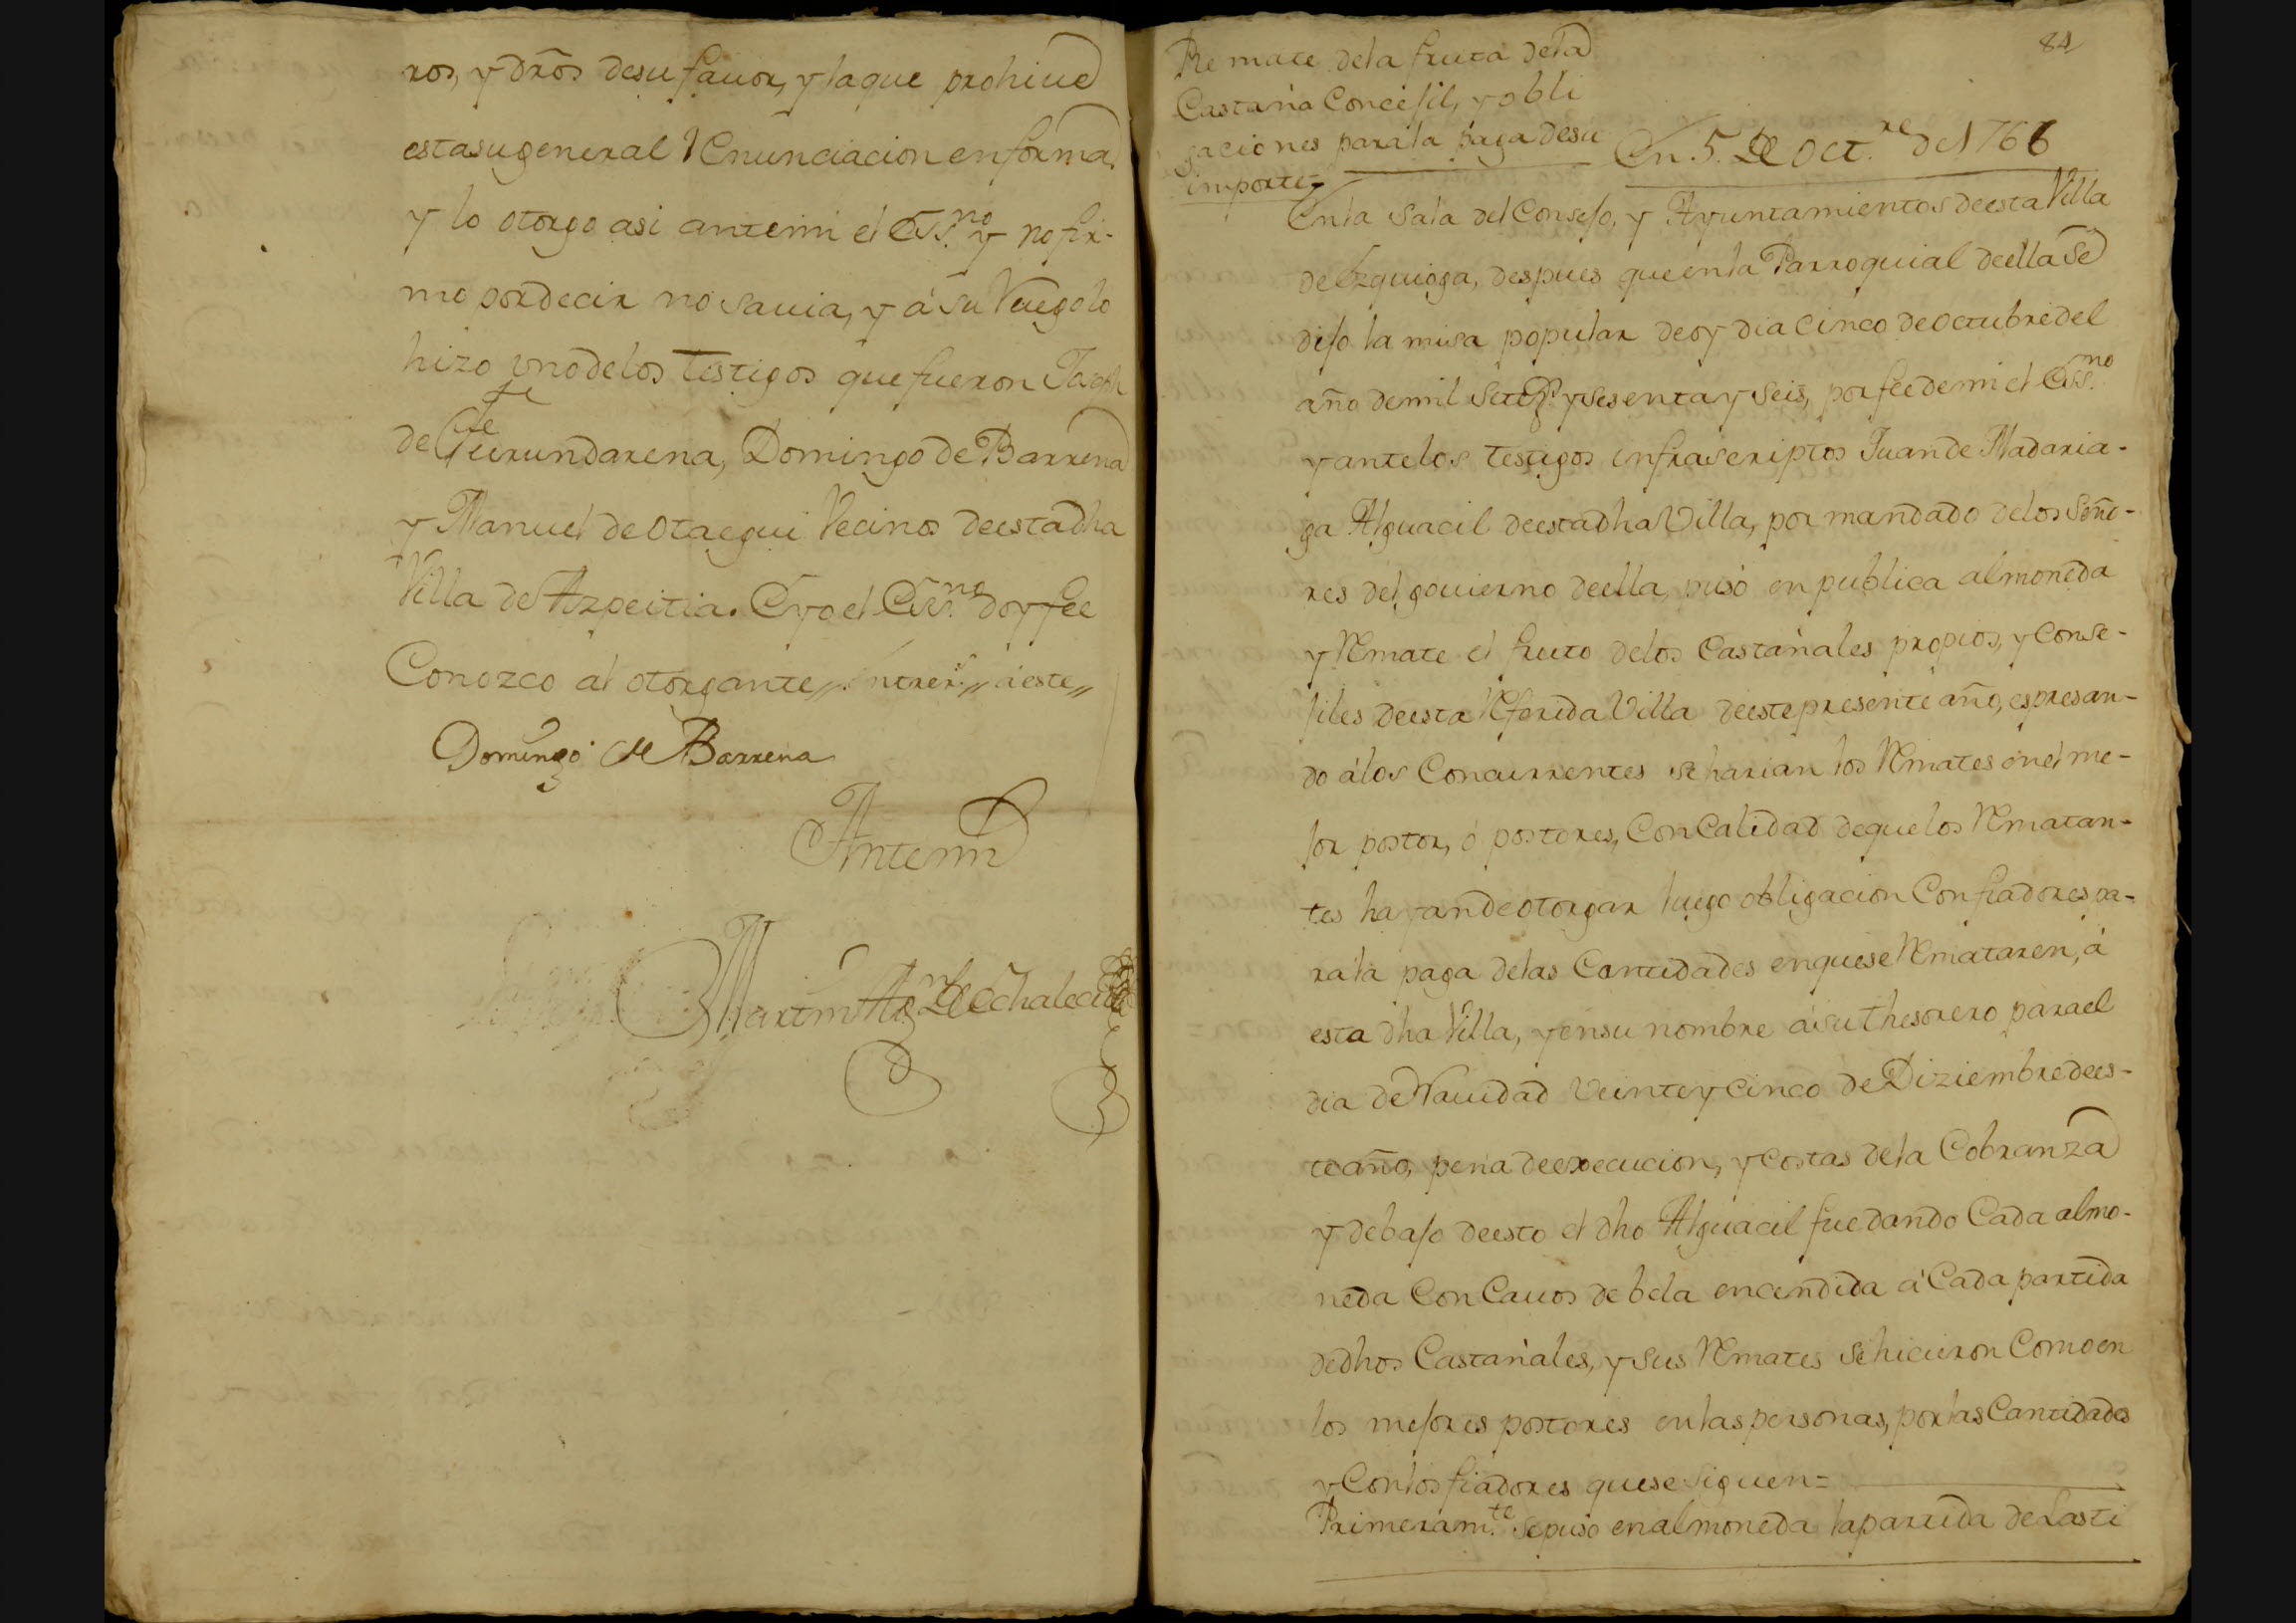 ros, y dr̃os desu fauor, y laque prohiue
estasugeneral Renunciacion enforma,
y lo otorgo asi antemi el Ess.no y nofir-
mo pordecir no sauia, y á su Ruego lo
hizo vnodelos testigos que fueron Joseph
de Gurundarena, Domingo de Barrena
y Manuel de Otaegui Vecinos deestadha
Villa de Azpeitia. E yo el Ess.no doy fee
Conozco al otorgante,, entrer.s,, á este,,
Domingo de Barrena
Antemi
Martin Ag.n de Echalecu
84
Remate dela fruta dela
Castaña Concejil, y obli
gaciones parala paga desu
importe
En. 5. De Oct.re de 1766
Enla Sala del Consejo, y Ayuntamientos deesta Villa
de Ezquioga, despues queenla Parroquial deella Se
dijo la misa popular deoy dia Cinco deoctubredel
año demil Setez.s ysesentay Seis, por feedemi el Ess.no
y antelos testigos infrascriptos Juande Madaria-
ga Alguacil deestadha Villa, por mandado delos Seño-
res del gouierno deella, pusó en publica almoneda
y Remate el fruto delos Castañales propios, y Conse-
jiles deesta Referida Villa deestepresente año, espresan-
do álos Concurrentes se harian los Remates enel me-
jor postor, ó postores, Con Calidad dequelos Rematan-
tes hayandeotorgar luego obligacion Confiadores pa-
rala paga delas Cantidades enquese Remataren, á
esta dha Villa, yensu nombre ásu thesorero parael
dia de Nauidad Veinteycinco de Diziembredees-
teaño, pena deexecucion, y costas dela Cobranza
y debajo deesto el dho Alguacil fuedando Cada almo-
neda Con Cauos de bela encendida á Cada partida
dedhos Castañales, y sus Remates Sehicieron Comoen
los mejores postores enlaspersonas, porlas Cantidades
y Conlos fiadores quese siguen=
Primeram.te Sepuso enalmoneda lapartida de Lasti